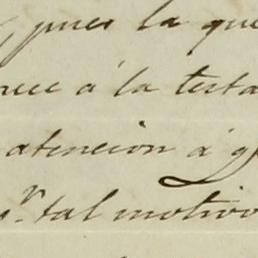 pues la que
á la testa
atencion á q
r. tal motivo